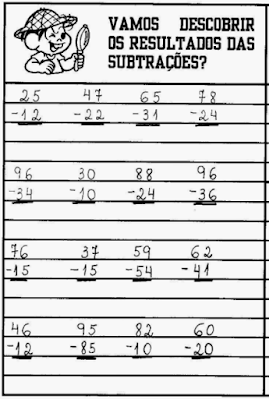 VAMOS DESCOBRIR
OS RESULTADOS DAS
SUBTRAÇÕES?
25 47 65 78
-12 -22 -31 -24
96 30 88 96
-34 -10 -24 -36
76 37 59 62
-15 -15 -54 -41
46 95 82 60
-12 -85 -10 -20